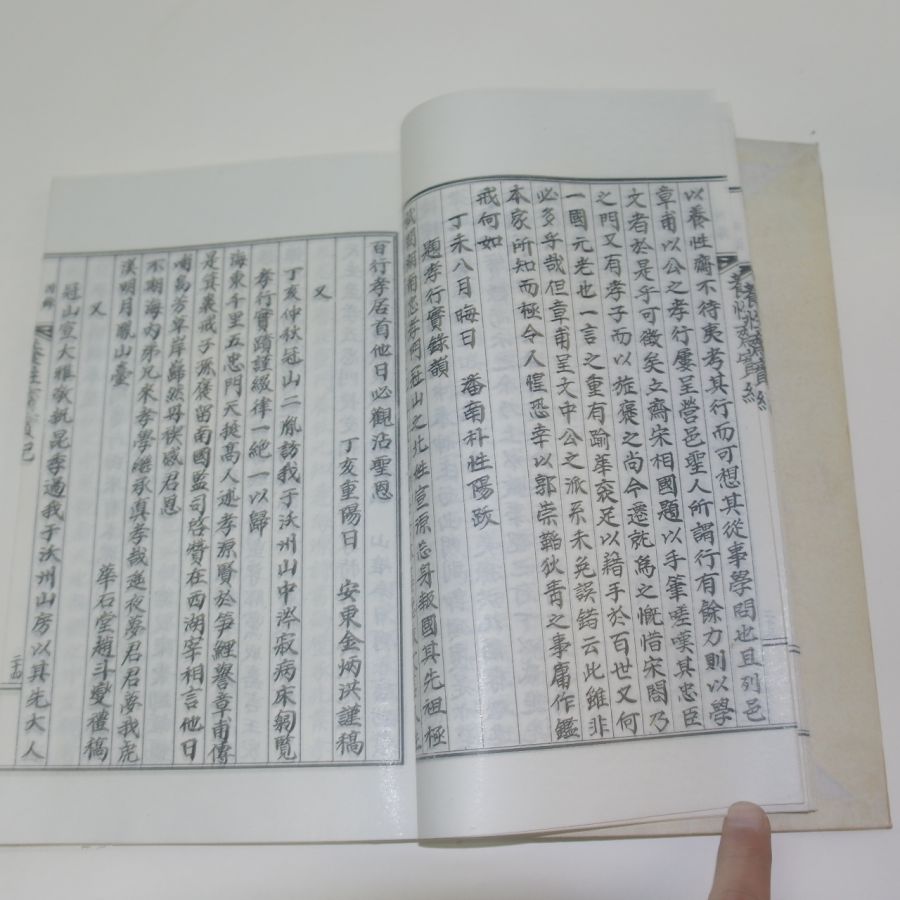 以養性齋不待夷考其行而可想其從事學問也且列邑
章甫以公之孝行屢呈營邑聖人所謂行有餘力則以學
文者於是乎可徵矣之齋宋相國題以手筆嗟嘆其忠臣
之門又有孝子而以旌褒之尚今遷就爲之慨惜宋閤乃
一國元老也一言之重有踰華袞足以藉手於百世又何
必多乎哉但章甫呈文中公之派系未免誤錯云此雖非
本家所知而極令人惶恐幸以郭崇韜狄靑之事庸作鑑
戒何如
丁未八月晦日 潘南朴性陽跋
題孝行實錄韻
忠孝門冠山之北姓宣源忘身報國其先祖極
百行孝居首他日必觀沾聖恩
丁亥重陽日 安東金炳洪謹稿
又
丁亥仲秋冠山二胤訪我于沃州山中涔寂病床躬覽
孝行實蹟謹綴律一絶一以歸
海東千里五忠門天挺高人述孝源賢於笋鯉譽章甫傳
是箕裘戒子孫褒留南國監司啓賚在西湖宰相言他日
不期海內弟兄來孝學繼承眞孝哉逆夜夢君君夢我虎
溪明月鳳山臺
華石堂趙斗燮禮稿
又
冠山宣大雅 昆季過我于沃州山房以其先大人